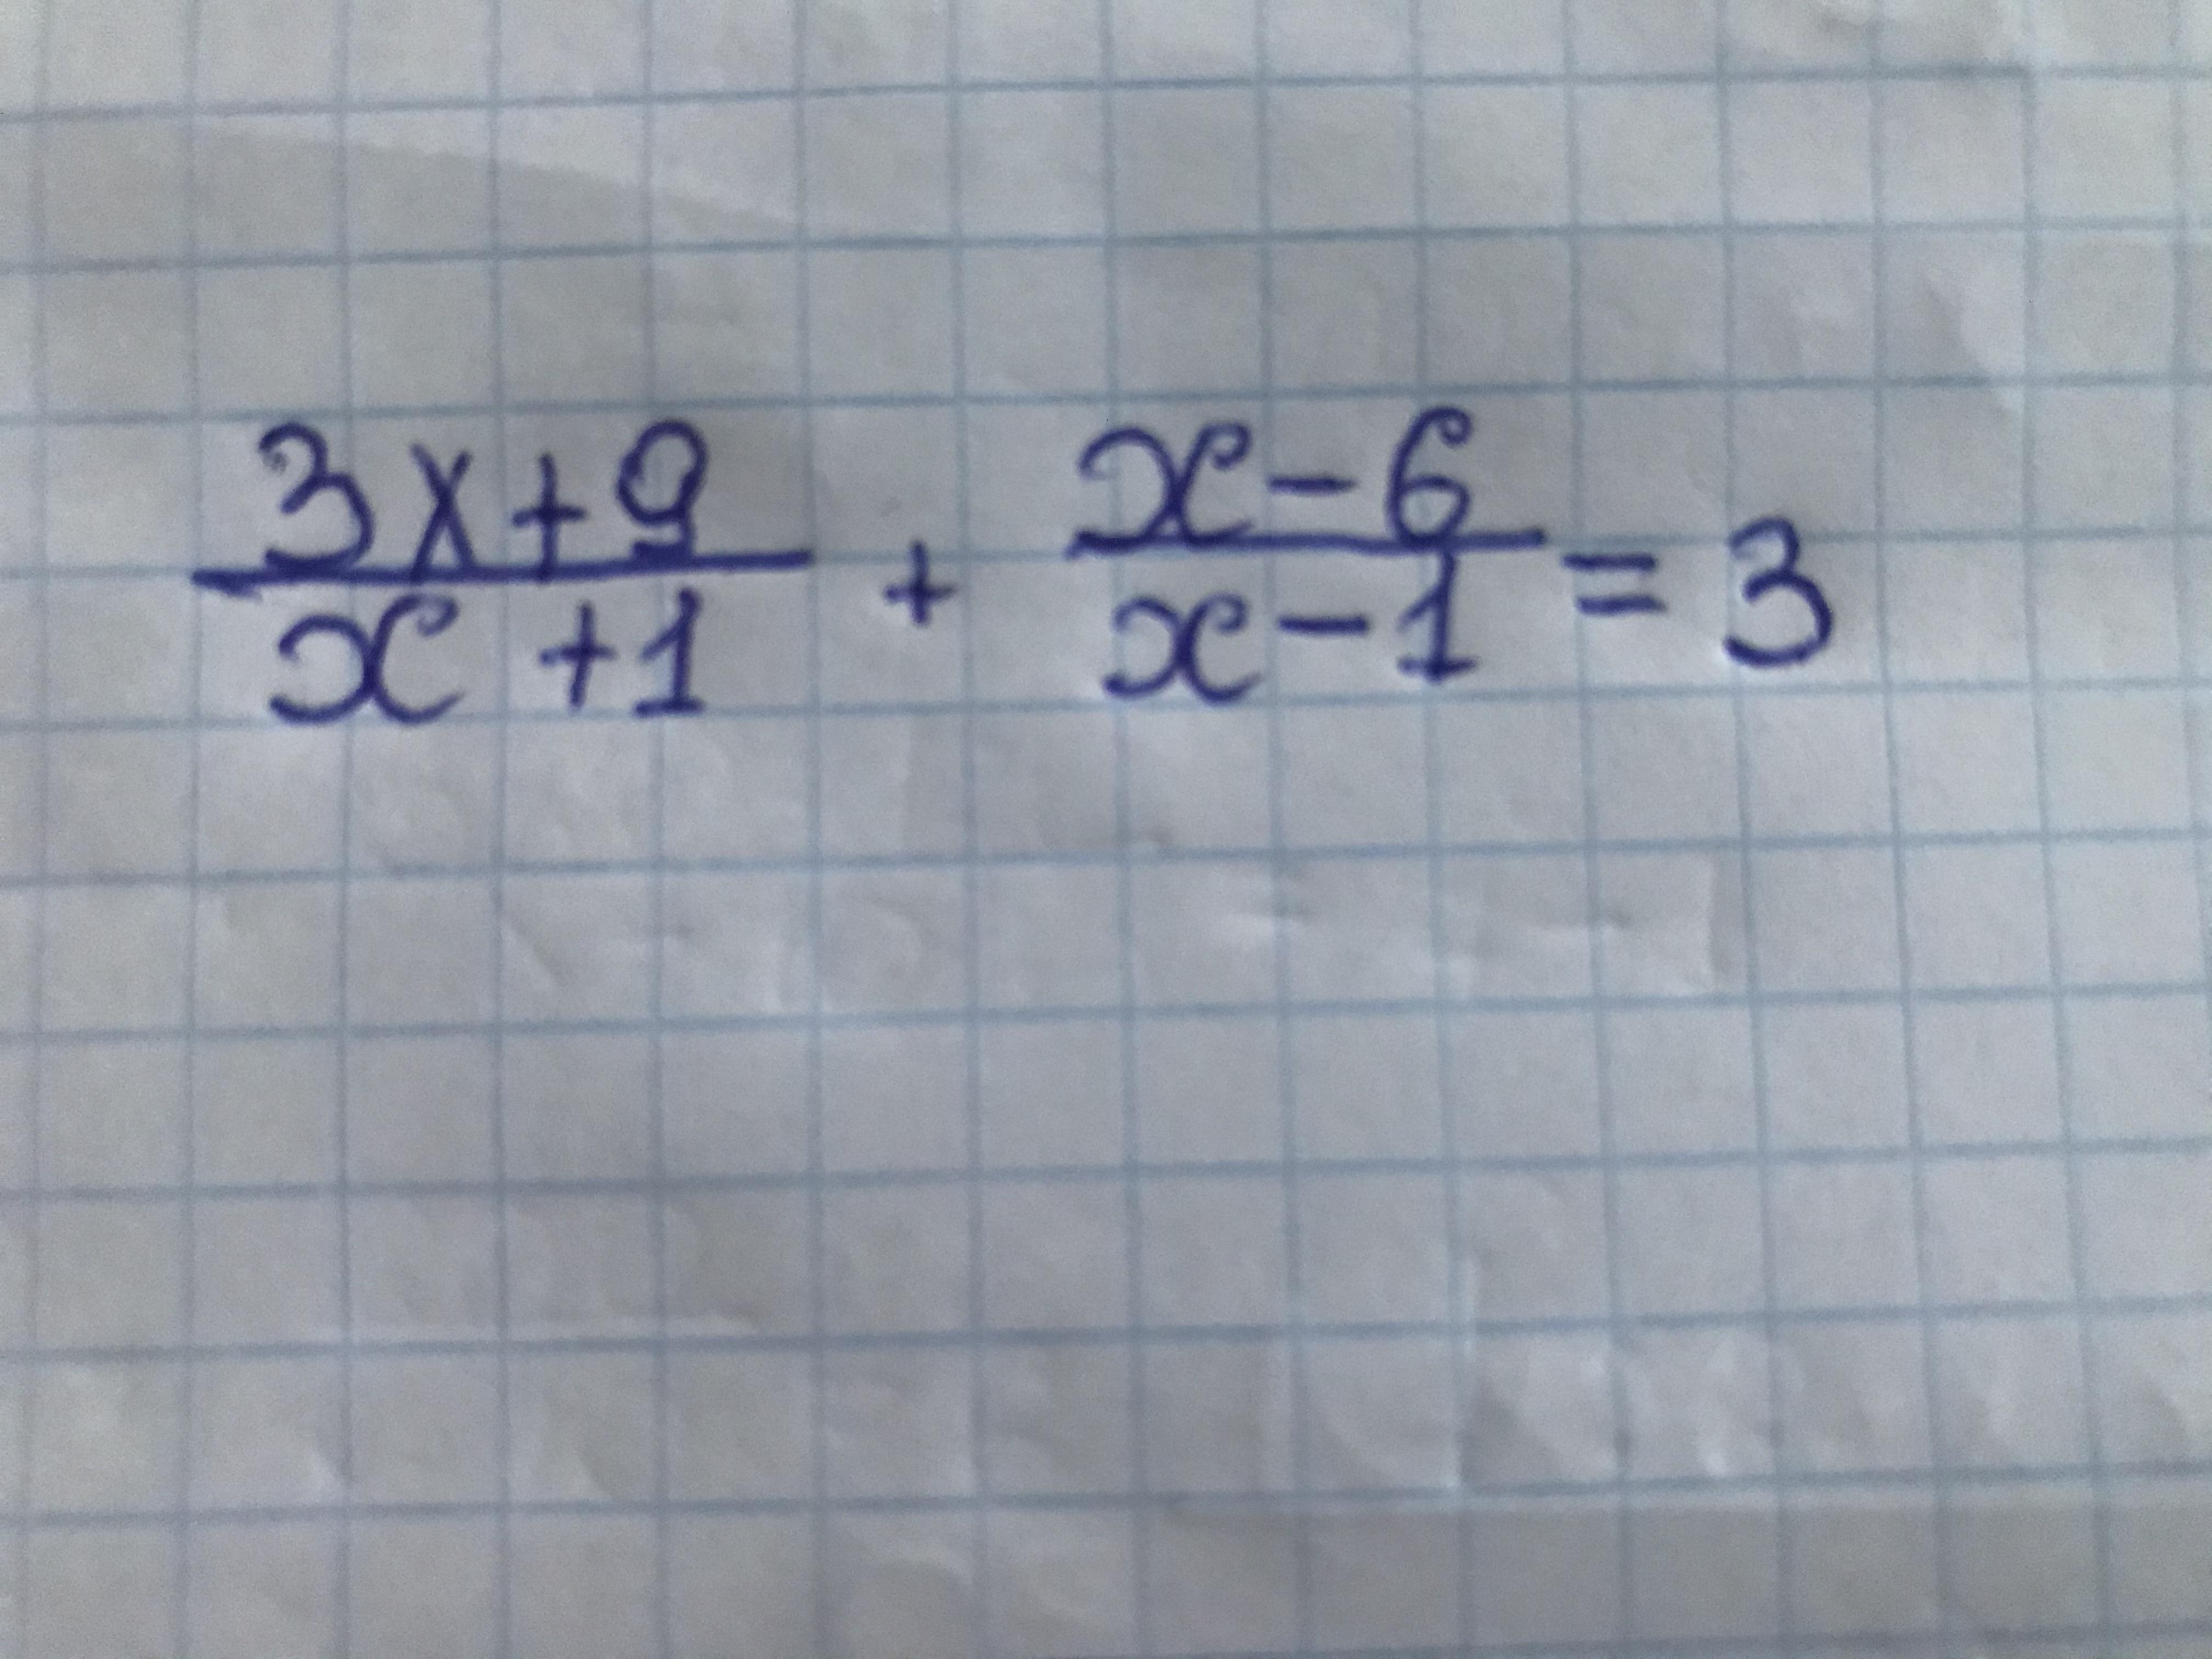 (3x+9)/(x+1) + (x-6)/(x-1) = 3